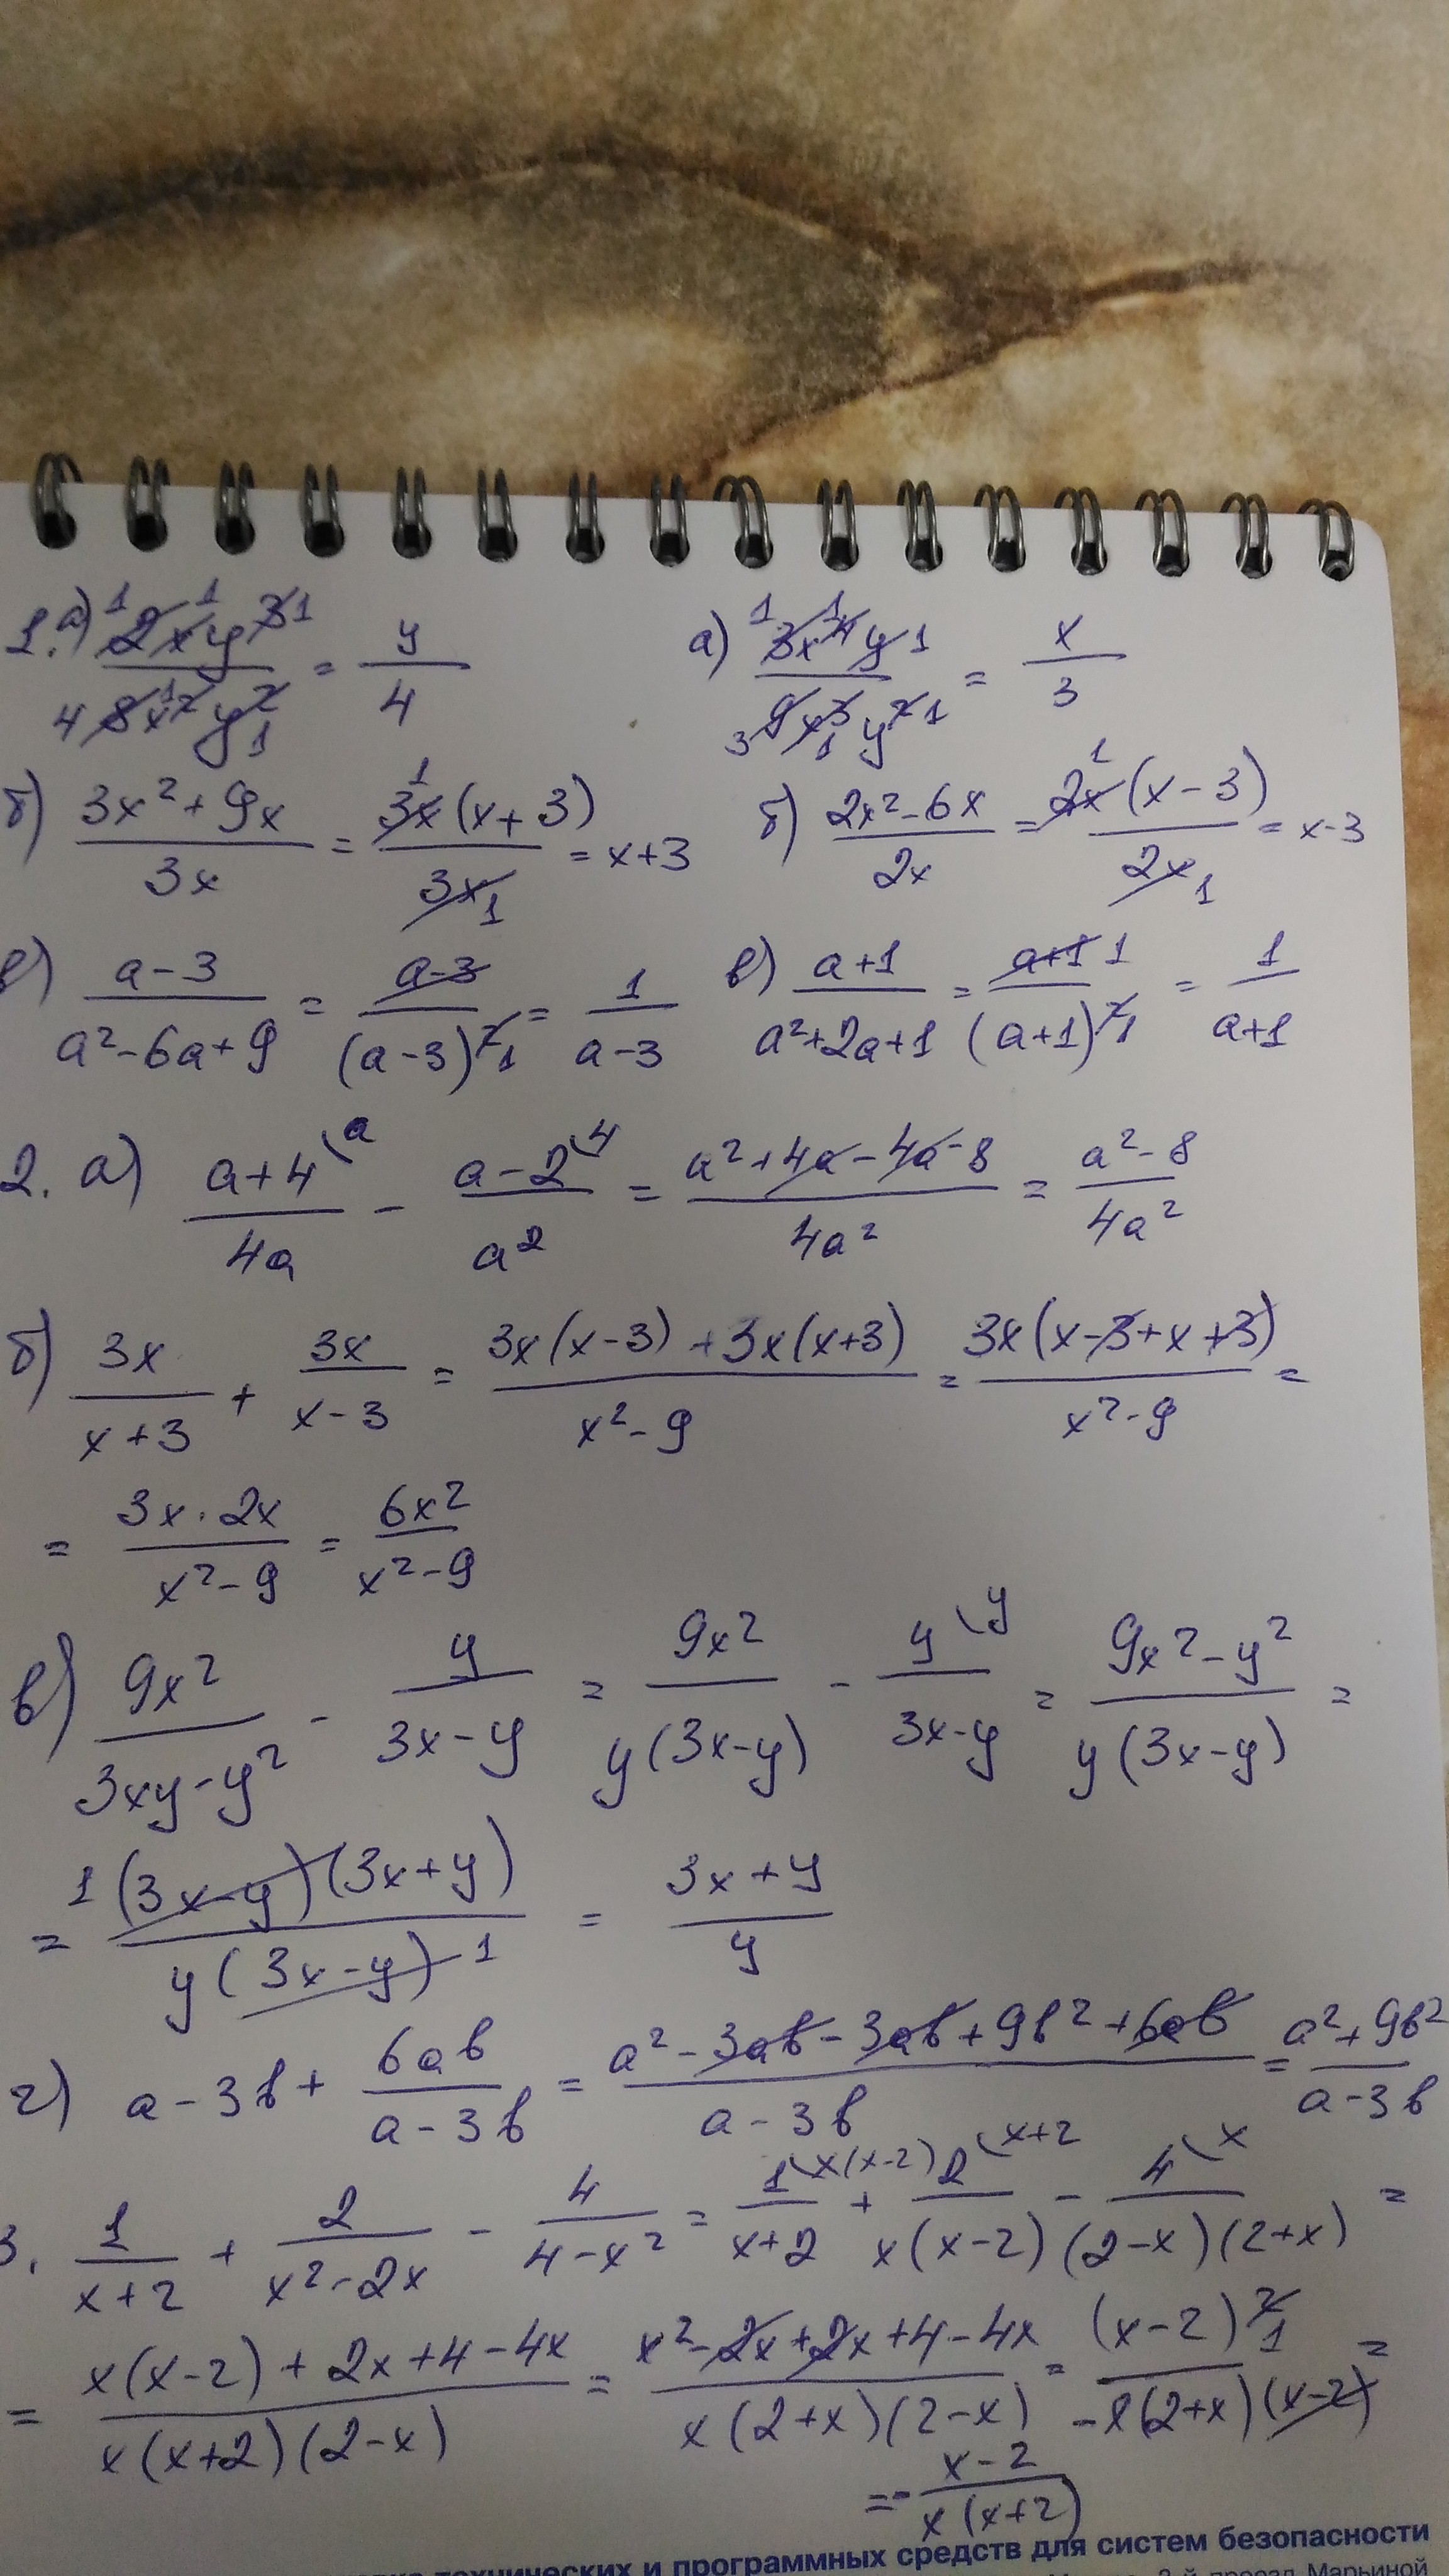 1. а) 2xy³/8x²y² = y/4 а) 3x⁴y/9x³y² = x/3
б) (3x²+9x)/3x = 3x(x+3)/3x = x+3 б) (2x²-6x)/2x = 2x(x-3)/2x = x-3
в) (a-3)/(a²-6a+9) = (a-3)/(a-3)² = 1/(a-3) в) (a+1)/(a²+2a+1) = (a+1)/(a+1)² = 1/(a+1)
2. а) (a+4)/4a - (a-2)/a² = (a²+4a-4a-8)/4a² = (a²-8)/4a²
б) 3x/(x+3) + 3x/(x-3) = (3x(x-3)+3x(x+3))/(x²-9) = 3x(x-3+x+3)/(x²-9) =
= 3x·2x/(x²-9) = 6x²/(x²-9)
в) 9x²/(3xy-y²) - y/(3x-y) = 9x²/y(3x-y) - y/(3x-y) = (9x²-y²)/y(3x-y) =
= (3x-y)(3x+y)/y(3x-y) = (3x+y)/y
г) a-3b + 6ab/(a-3b) = (a²-3ab-3ab+9b²+6ab)/(a-3b) = (a²+9b²)/(a-3b)
3. 1/(x+2) + 2/(x²-2x) - 4/(4-x²) = 1/(x+2) + 2/x(x-2) - 4/(2-x)(2+x) =
= (x(x-2)+2x+4-4x)/x(x+2)(2-x) = (x²-2x+2x+4-4x)/x(2+x)(2-x) = (x-2)²/-x(2+x)(x-2) =
= -(x-2)/x(x+2)
технических и программных средств для систем безопасности
проезд Марьиной